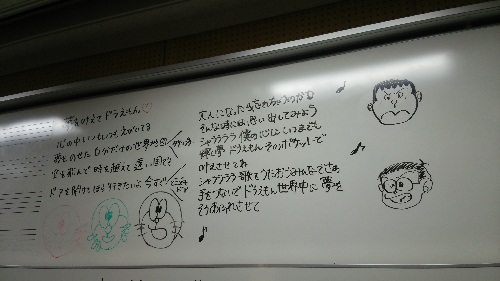 夢をかなえてドラえもん♡
心の中いつもいつもえがいてる
夢をのせた自分だけの世界地図
空を飛んで時を越えて遠い国でも
ドアを開けてほら行きたいよ今すぐ
どこでもドア
大人になったら忘れちゃうのかな
そんな時には思い出してみよう
シャララララ 僕の心に いつまでも
輝く夢 ドラえもん そのポケットで
叶えさせてね
シャララララ 歌をうたおう みんなでさあ
手をつないで ドラえもん 世界中に 夢を
そうあふれさせて